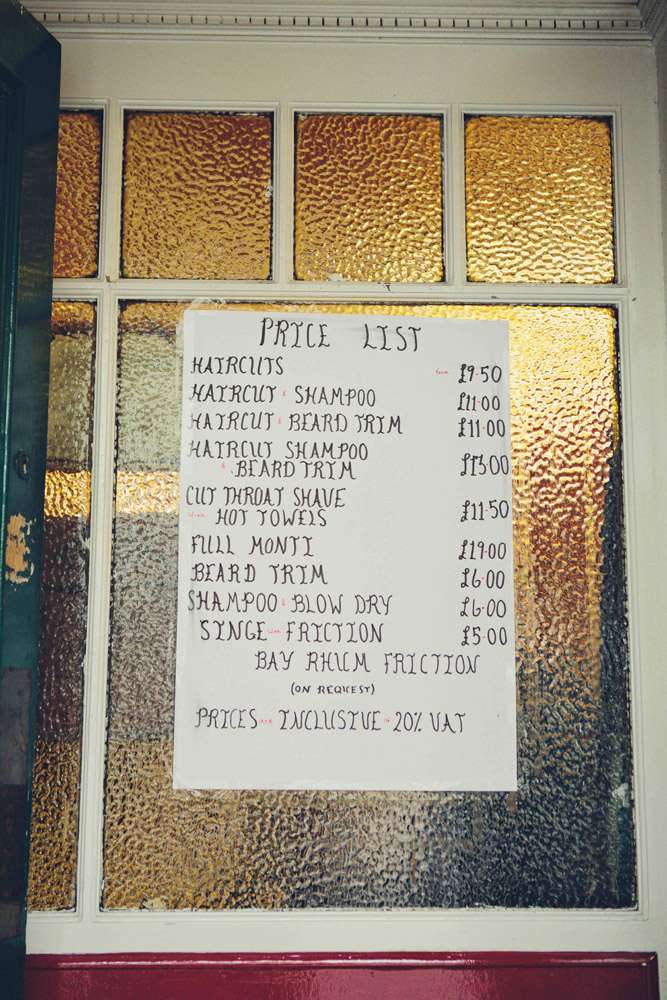 PRICE LIST
HAIRCUTS from £9·50
HAIRCUT & SHAMPOO £11·00
HAIRCUT & BEARD TRIM £11·00
HAIRCUT SHAMPOO
& BEARD TRIM £13·00
CUT THROAT SHAVE
with HOT TOWELS £11·50
FULL MONTI £19·00
BEARD TRIM £6·00
SHAMPOO & BLOW DRY £6·00
SINGE with FRICTION £5·00
BAY RHUM FRICTION
(ON REQUEST)
PRICES are INCLUSIVE of 20% VAT